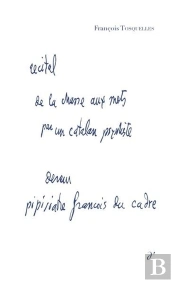 François TOSQUELLES
recital
de la chasse aux mots
par un catalan
devenu
pipisiatre francais du cadre
d'
B